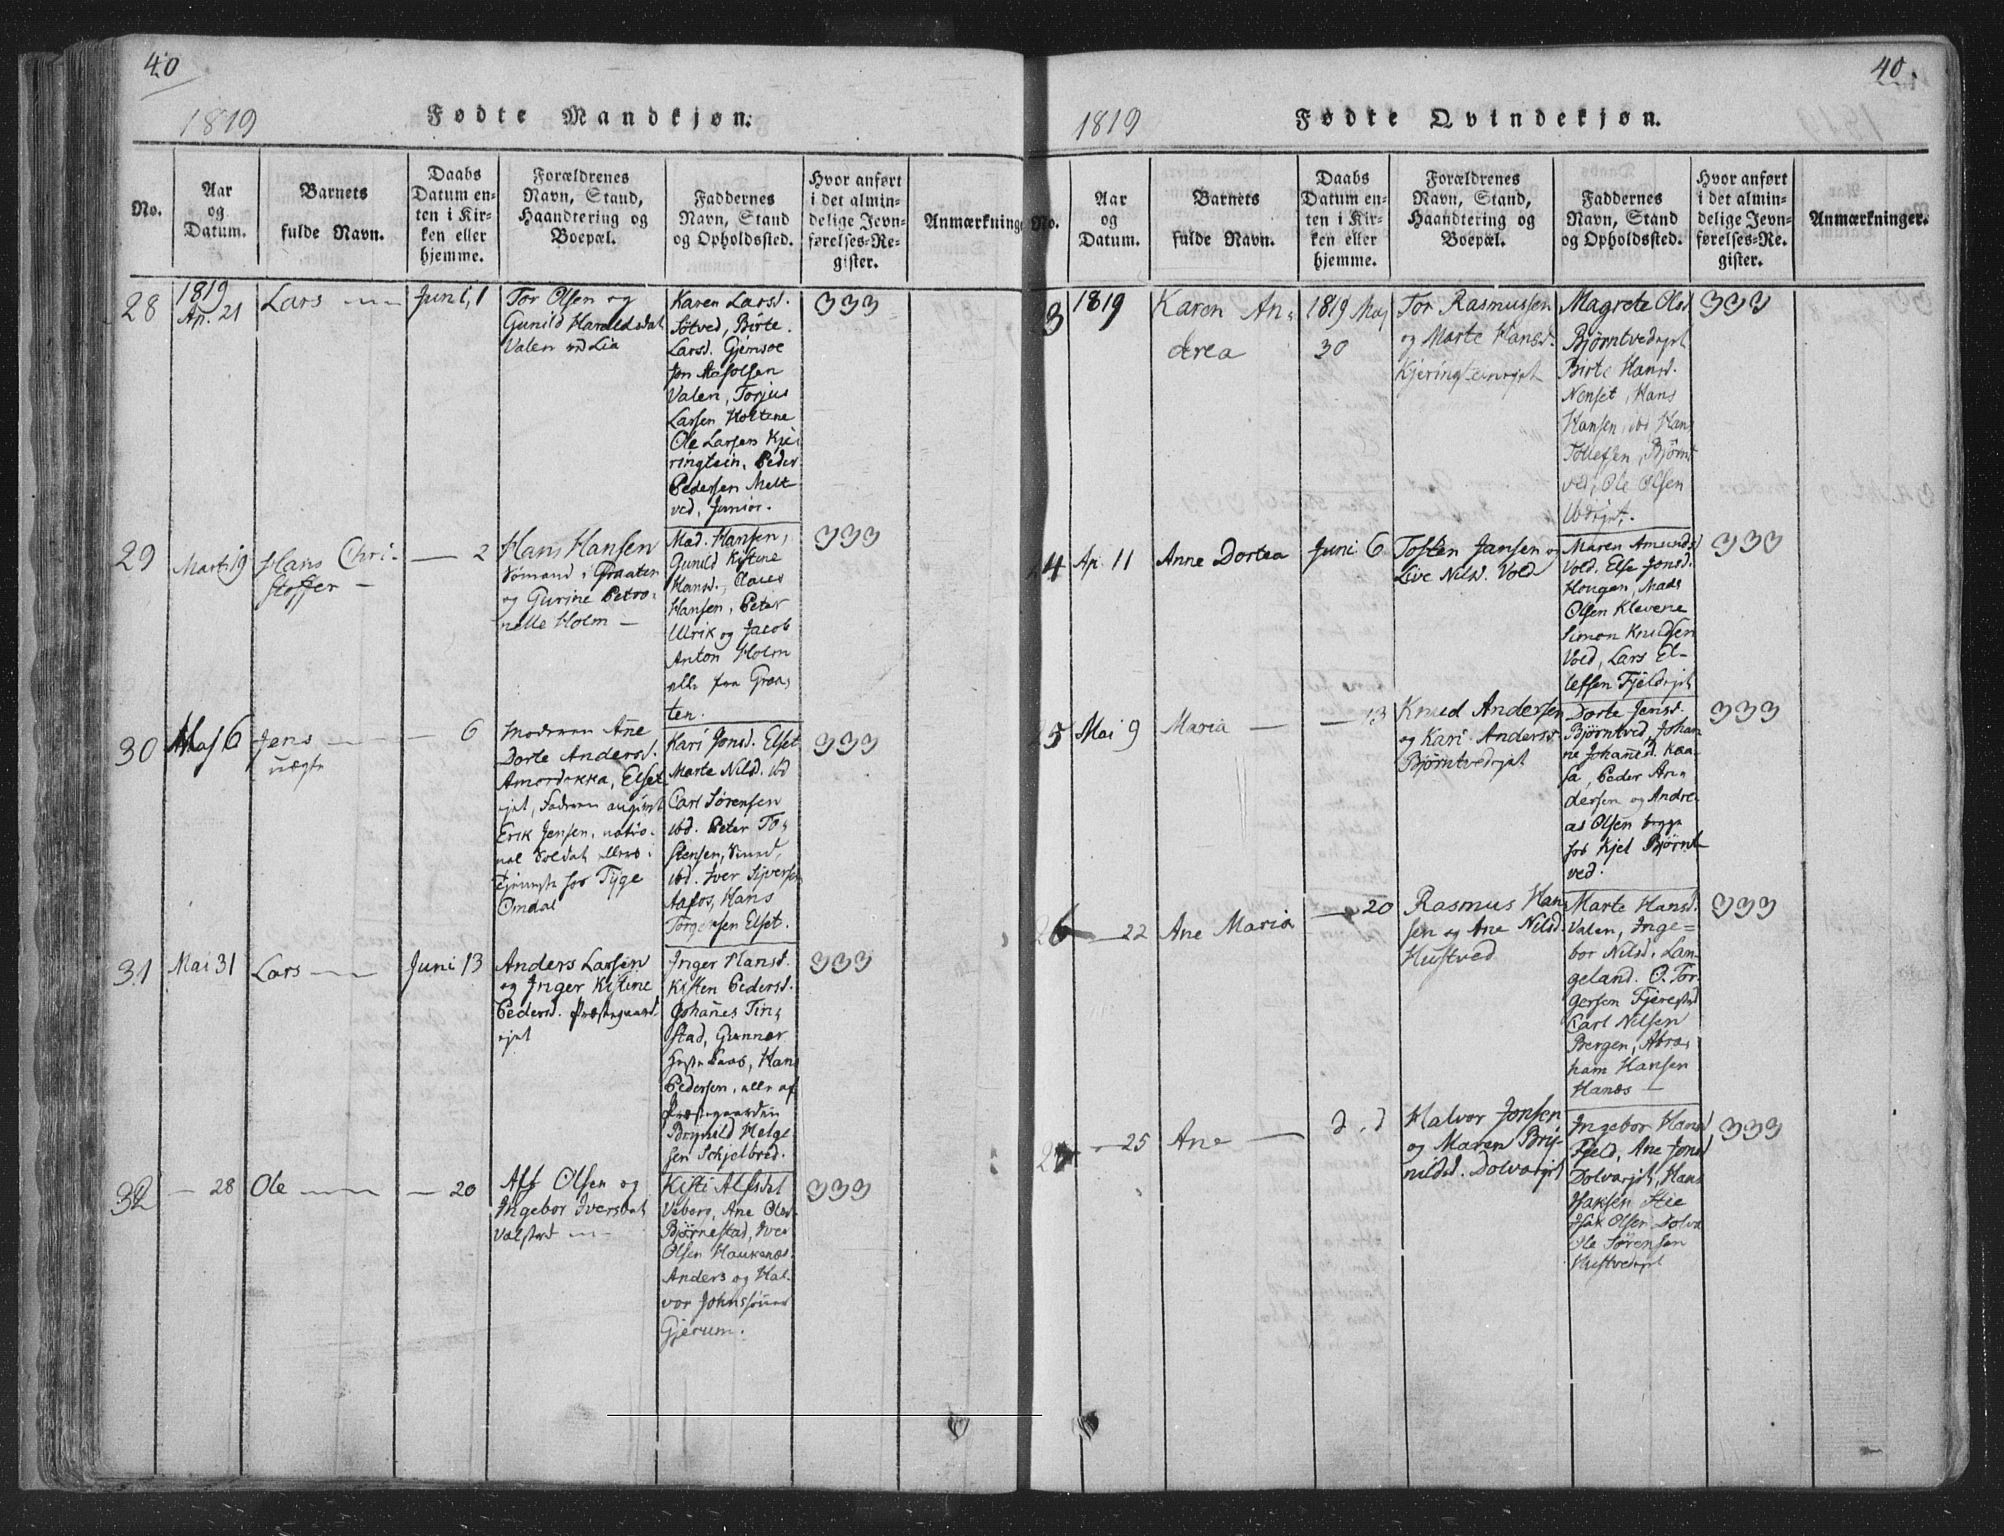 40
1819
Fødte Mandkjøn.
No.
Aar
og
Datum.
Barnets
fulde Navn.
Daabs
Datum en-
ten i Kir-
ken eller
hjemme.
Forældrenes
Navn, Stand,
Haandtering og
Boepæl.
Faddernes
Navn, Stand
og Opholdssted.
Hvor anført
i det almin-
delige Jevn-
førelses-Re-
gister.
Anmærkninge
28
1819
Ap. 21
Lars
Juni, 1
Tor Olsen og
Gunild Haraldsdat
Valen
Karen Larsd.
Søtved, Birte
Larsd. Gjemsøe
Valen, Torjus
Larsen Holtene
Ole Larsens Kje
ringtein, Peder
Pedersen Melt
ved, Junior.
333
29
Marti 19
Hans Chri-
stoffer
2
Hans Hansen
Sømand i Graaten
og Gurine Petro-
nelle Holm
Mad. Hansen,
Gunild Kistine
Hansd., Claus
Hansen, Peter
Ulrik og Jacob
Anton Holm
alle fra Graa-
ten.
333
30
Maj 6
Jens
uægte
6
Moderen Ane
Dorte Andersd.
Elset
ejet, Faderen
Erik Jensen, natio-
nal Soldat
Tjeneste hos Tyge
Omdal
Kari Jonsd. Elset
Marte Nilsd. ibd
Carl Sørensen
ibd. Peter To-
stensen, Smed,
ibd. Iver Sjversen
Aafos, Hans
Torgersen Elset.
333
31
Mai 31
Lars
Juni 13
Anders Larsen
og Inger Kistine
Pedersd. Præstegaards
ejet
Inger Hansd.
Kisten Pedersd.
Johanes Tin-
stad, Gunner
Hans
Pedersen, alle af
Præstegaarden
Brynild Helge
sen Schjelbred.
333
32
28
Ole
20
Aff Olsen og
Ingebor Iversdat
Valstad
Kisti Alfsdat
Veberg, Ane Olsd.
Bjørnestad, Iver
Olsen Haukenæs
Anders og Hal-
vor Johnssøner
Gjerum.
333
40.
1819
Fødte Qvindekjøn.
No.
Aar
og
Datum.
Barnets
fulde Navn.
Daabs
Datum en-
ten i Kir-
ken eller
hjemme.
Forældrenes
Navn, Stand,
Haandtering og
Boepæl.
Faddernes
Navn, Stand
og Opholdssted.
Hvor anført
i det almin-
delige Jevn-
førelses-Re-
gister.
Anmærkninger.
3
1819
Karen An-
drea
1819 Maj
30
Tor Rasmussen
og Marte Hansd.
Magrete Olsd
Bjørntvedejet
Birte Hansd.
Nenset, Hans
Hansen, ibd Hans
Tollefsen, Bjørnt
ved, Ole Olsen
333
4
Ap. 11
Anne Dortea
Juni 6
Tosten Jansen og
Live Nilsd. Vold
Maren Amunds
Vold, Else Jonsd.
Hougen, Mads
Olsen Klevene
Simon Knudsen
Vold, Lars El-
lefsen Fjeldejet
333
25
Mai 9
Maria
13
Knud Andersen
og Kari Andersd.
Bjørntvedejet
Dorte Jensd.
Bjørntved, Johan
ne Johanesd. Kaa-
sa, Peder An-
dersen og Andre-
as Olsen begge
hos Kjel Bjørnt
ved.
333
26
22
Ane Maria
20
Rasmus Han
sen og Ane Nilsd
Hustved
Marte Hansd.
Valen, Inge-
bor Nilsd. Lan-
geland. O. Tor-
gersen Fjerestad
Carl Nilsen
Bergen, Abra-
ham Hansen
Hanæs
333
25
Ane
d. d
Halvor Jonsen
og Maren Bry-
nildsd. Dolvaejet
Ingebor Hansd
Fjeld, Ane Jonsd
Dolvaejet, Hans
Isaksen Stie
Isak Olsen Dolva
Ole Sørensen
Hustvedejet
333